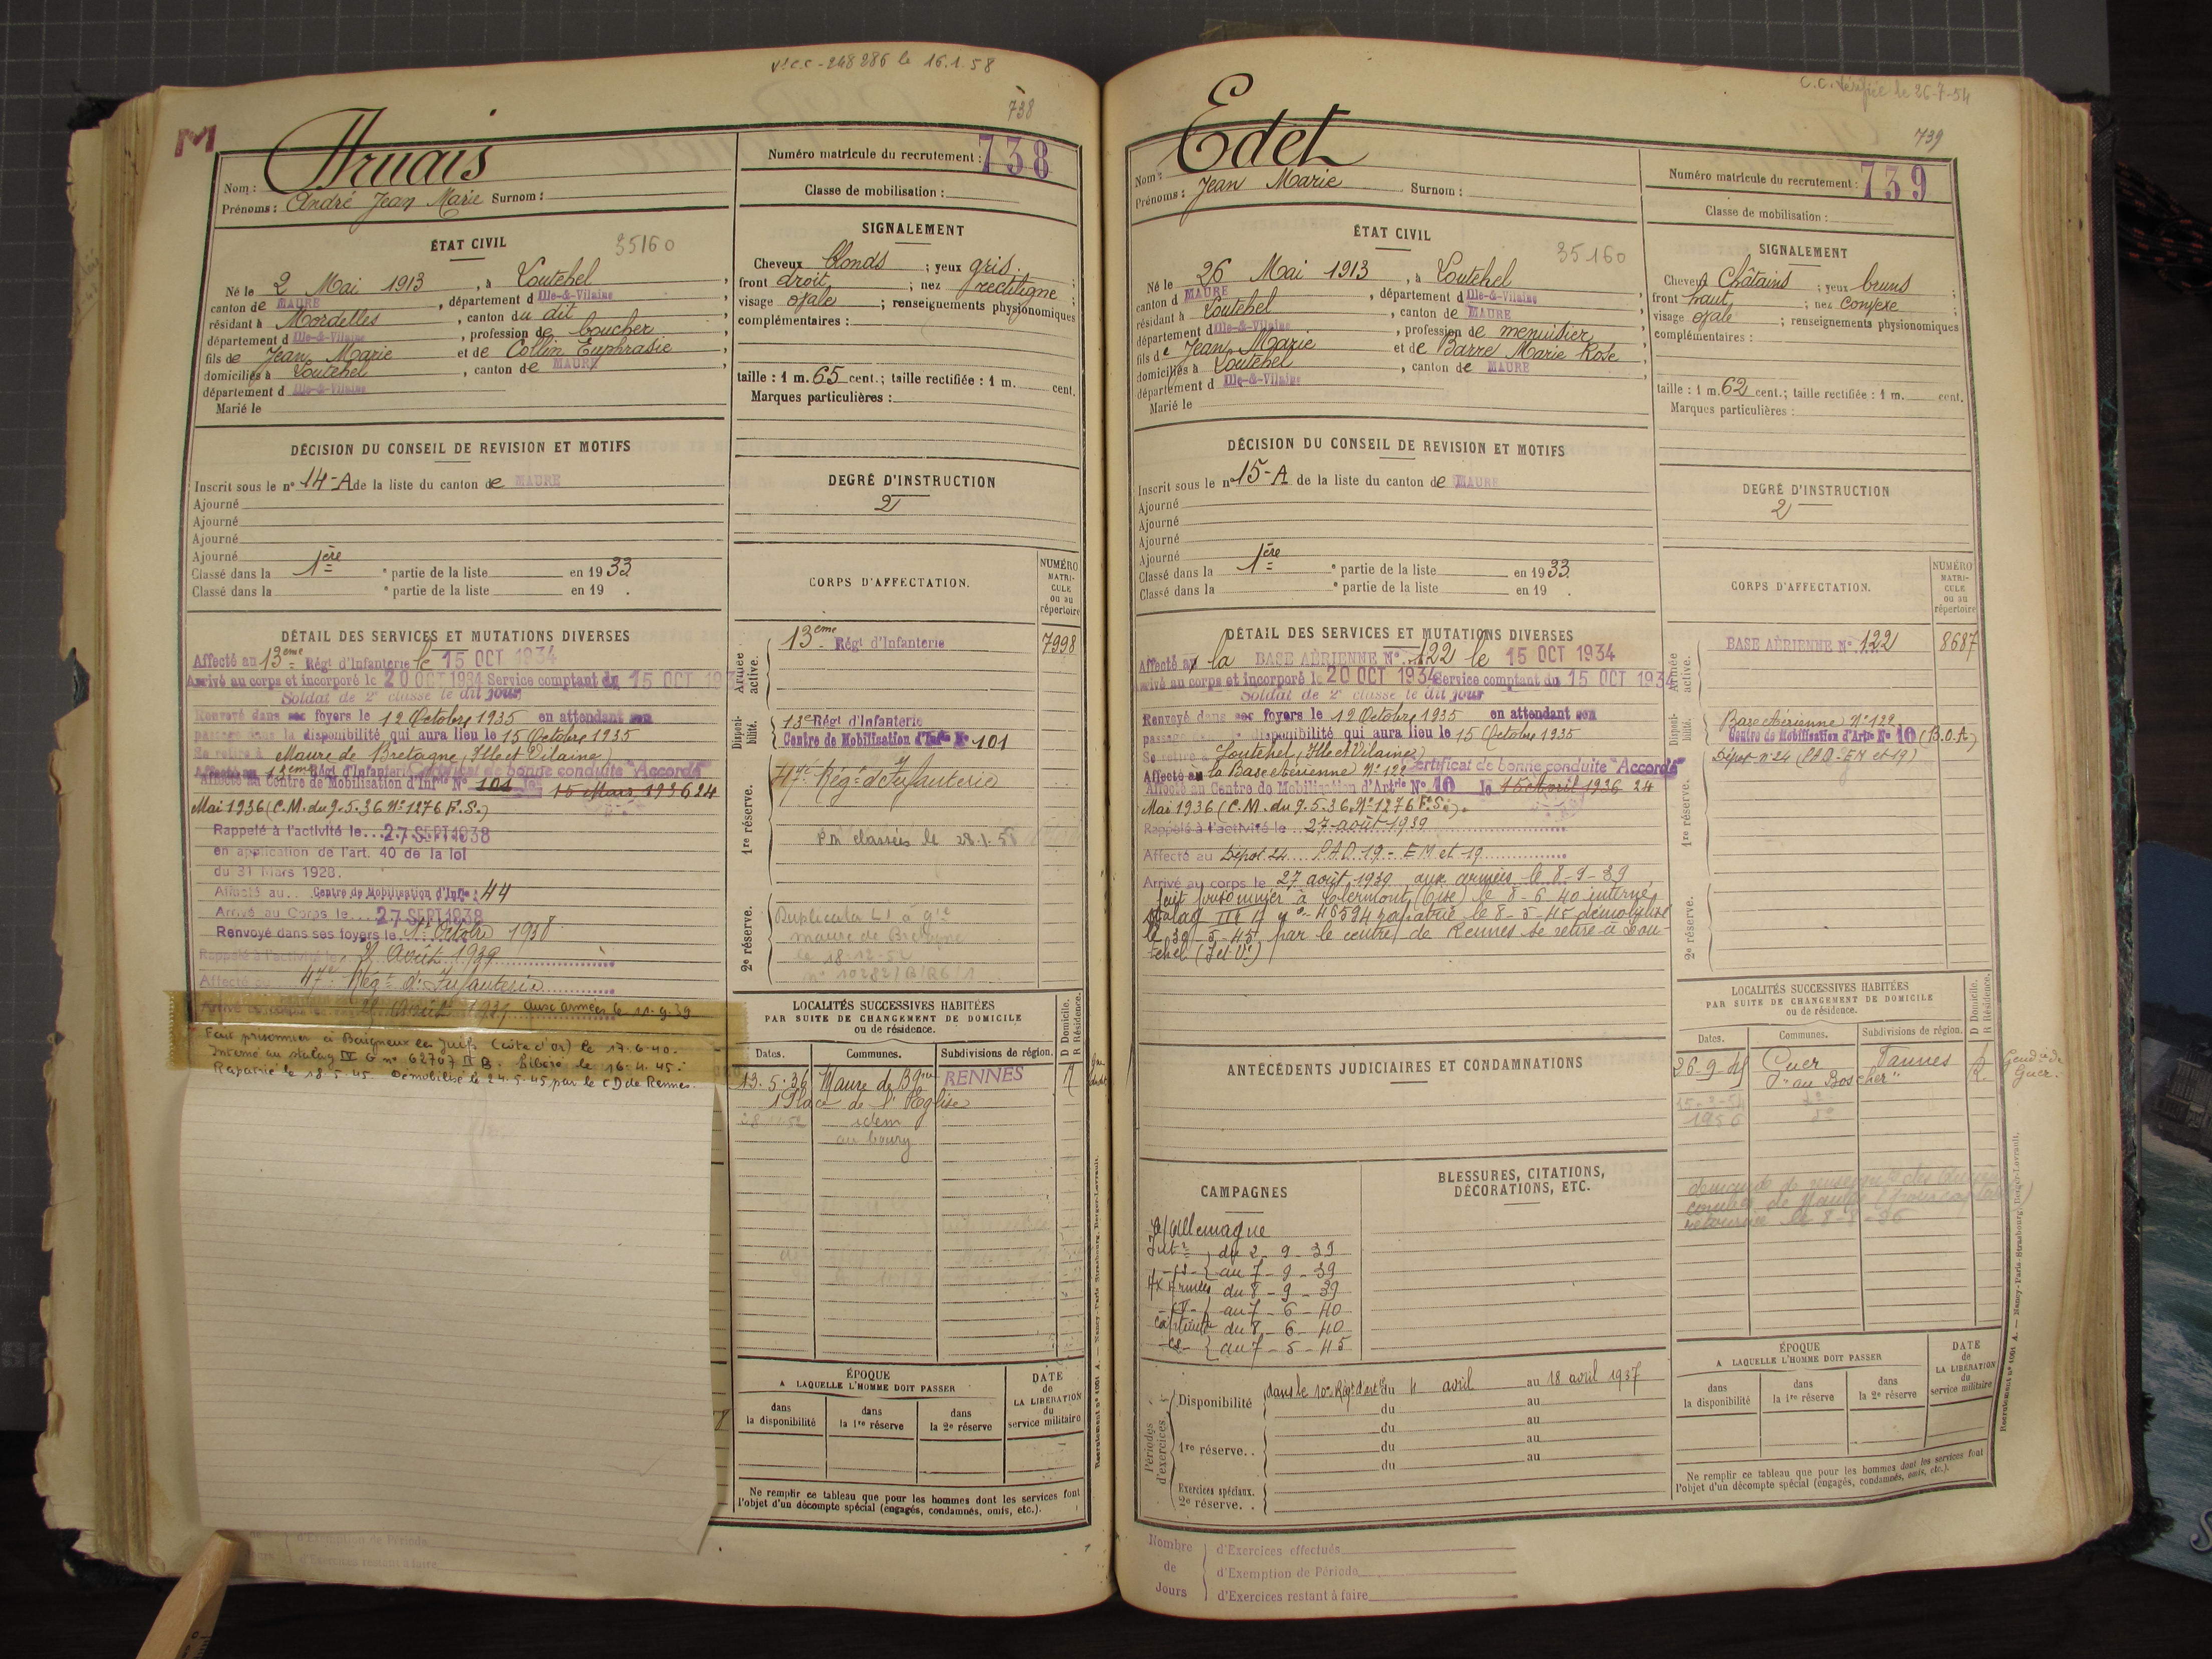 Vu C.C - 248286 le 16.1.58
738
M
Nom : Aruais
Prénoms : André Jean Marie Surnom :
Numéro matricule du recrutement : 738
Classe de mobilisation :
ÉTAT CIVIL
35160
Né le 2 Mai 1913, à Loutehel,
canton de MAURE, département d Ille-&-Vilaine
résidant à Mordelles, canton du dit,
département d Ille-&-Vilaine, profession de boucher
fils de Jean Marie et de Collin Euphrasie
domiciliés à Loutehel, canton de MAURE,
département d Ille-&-Vilaine
Marié le
SIGNALEMENT
Cheveux blonds ; yeux gris ;
front droit ; nez rectiligne ;
visage ovale ; renseignements physionomiques
complémentaires :
taille : 1 m. 65 cent.; taille rectifiée : 1 m. cent.
Marques particulières :
DÉCISION DU CONSEIL DE REVISION ET MOTIFS
Inscrit sous le n° 14-A de la liste du canton de MAURE
Ajourné
Ajourné
Ajourné
Ajourné
Classé dans la 1ère e partie de la liste en 1933
Classé dans la e partie de la liste en 19 .
DEGRÉ D'INSTRUCTION
2
DÉTAIL DES SERVICES ET MUTATIONS DIVERSES
Affecté au 13eme Régt d'Infanterie le 15 OCT 1934
Arrivé au corps et incorporé le 20 OCT 1934 Service comptant du 15 OCT 193
Soldat de 2e classe le dit jour
Renvoyé dans ses foyers le 12 Octobre 1935 en attendant son
passage dans la disponibilité qui aura lieu le 15 Octobre 1935
Se retire à Maure de Bretagne (Ille et Vilaine)
Affecté au 13eme Régt d'Infanterie Certificat de bonne conduite "Accordé"
Affecté au Centre de Mobilisation d'Infie N° 101 le 15 Mars 1936 24
Mai 1936 (C.M. du 9.5.36 N° 1276 F.S.)
Rappelé à l'activité le 27 SEPT 1938
en application de l'art. 40 de la loi
du 31 Mars 1928.
Affecté au Centre de Mobilisation d'Infie 44
Arrivé au Corps le 27 SEPT 1938
Renvoyé dans ses foyers le 1er Octobre 1938
Rappelé à l'activité le Août 1939
Affecté au 47e Régt d'Infanterie
Arrivé Août 1939 aux armées le 11.9.39
Fait prisonnier à Baigneux les Juifs (Côte d'or) le 17.6.40.
Interné au stalag IV G n° 62707 II B. Libéré le 16.4.45.
Rapatrié le 18.5.45. Démobilisé le 24.5.45 par le CD de Rennes.
CORPS D'AFFECTATION.
NUMÉRO MATRICULE ou au répertoire
Armée active.
13eme Régt d'Infanterie
7998
Disponibilité.
13e Régt d'Infanterie
Centre de Mobilisation d'Infie N° 101
1re réserve.
Régt d'Infanterie
PM classées le 28.1.58
2e réserve.
Duplicata Lt à Gie
Maure de Bretagne
le 18-12-52
n° 10282/B/R6/1
LOCALITÉS SUCCESSIVES HABITÉES
PAR SUITE DE CHANGEMENT DE DOMICILE
ou de résidence.
D Domicile. R Résidence.
Dates. Communes. Subdivisions de région.
13.5.36 Maure de Bgne RENNES R
1 Place de l'Eglise
idem
au bourg
ÉPOQUE
A LAQUELLE L'HOMME DOIT PASSER
dans la disponibilité
dans la 1re réserve
dans la 2e réserve
DATE de LA LIBÉRATION du service militaire
Ne remplir ce tableau que pour les hommes dont les services font
l'objet d'un décompte spécial (engagés, condamnés, omis, etc.).
d'Exemption de Période
d'Exercices restant à faire
Recrutement n° 1061 A. — Nancy-Paris-Strasbourg, Berger-Levrault.
C.C. Vérifiée le 26-7-54
739
Nom : Edet
Prénoms : Jean Marie Surnom :
Numéro matricule du recrutement : 739
Classe de mobilisation :
ÉTAT CIVIL
35160
Né le 26 Mai 1913, à Loutehel
canton d MAURE, département d Ille-&-Vilaine
résidant à Loutehel, canton de MAURE
département d Ille-&-Vilaine, profession de menuisier,
fils de Jean Marie et de Barre Marie Rose,
domiciliés à Loutehel, canton de MAURE,
département d Ille-&-Vilaine
Marié le
SIGNALEMENT
Cheveux Châtains ; yeux bruns ;
front haut ; nez convexe ;
visage ovale ; renseignements physionomiques
complémentaires :
taille : 1 m. 62 cent.; taille rectifiée : 1 m. cent.
Marques particulières :
DÉCISION DU CONSEIL DE REVISION ET MOTIFS
Inscrit sous le n° 15-A de la liste du canton de MAURE
Ajourné
Ajourné
Ajourné
Ajourné
Classé dans la 1ère e partie de la liste en 1933.
Classé dans la e partie de la liste en 19 .
DEGRÉ D'INSTRUCTION
2
DÉTAIL DES SERVICES ET MUTATIONS DIVERSES
Affecté à la BASE AÉRIENNE N° 122 le 15 OCT 1934
Arrivé au corps et incorporé le 20 OCT 1934 Service comptant du 15 OCT 1934
Soldat de 2e classe le dit jour
Renvoyé dans ses foyers le 12 Octobre 1935 en attendant son
passage dans la disponibilité qui aura lieu le 15 Octobre 1935
Se retire à Loutehel (Ille et Vilaine)
Affecté à la Base Aérienne N° 122 Certificat de bonne conduite "Accordé"
Affecté au Centre de Mobilisation d'Artie N° 10 le 15 Avril 1936 24
Mai 1936 (C.M. du 9.5.36 N° 1276 F.S.).
Rappelé à l'activité le 27 août 1939
Affecté au Dépot 24 P.A.D. 19 - EM et 19
Arrivé au corps le 27 août 1939 aux armées le 8-9-39
fait prisonnier à Clermont (Oise) le 8-6-40 interné
stalag n° 46594 rapatrié le 8-5-45 démobilisé
le 30-5-45 par le centre de Rennes se retire à Lou-
tehel (I et V.)
CORPS D'AFFECTATION.
NUMÉRO MATRICULE ou au répertoire
Armée active.
BASE AÉRIENNE N° 122
8687
Disponibilité.
Base Aérienne N° 122
Centre de Mobilisation d'Artie N° 10 (B.O.A)
Dépot n° 24 (PAD-EM et 19)
1re réserve.
2e réserve.
ANTÉCÉDENTS JUDICIAIRES ET CONDAMNATIONS
LOCALITÉS SUCCESSIVES HABITÉES
PAR SUITE DE CHANGEMENT DE DOMICILE
ou de résidence.
D Domicile. R Résidence.
Dates. Communes. Subdivisions de région.
26-9-45 Guer Vannes
"au Boscher" R.
Gendie de Guer.
1956
retournée le 8-8-56
CAMPAGNES
c/ Allemagne
Intre du 2-9-39
cs au 7-9-39
Ax Armées du 8-9-39
au 7-6-40
captivité du 8-6-40
cs au 7-5-45
BLESSURES, CITATIONS,
DÉCORATIONS, ETC.
Périodes d'exercices.
Disponibilité dans le 10e Régt d'artie du 4 avril au 18 avril 1937
du au
du au
1re réserve. . du au
du au
Exercices spéciaux.
2e réserve. .
ÉPOQUE
A LAQUELLE L'HOMME DOIT PASSER
dans la disponibilité
dans la 1re réserve
dans la 2e réserve
DATE de LA LIBÉRATION du service militaire
Ne remplir ce tableau que pour les hommes dont les services font
l'objet d'un décompte spécial (engagés, condamnés, omis, etc.).
Nombre de Jours
d'Exercices effectués
d'Exemption de Période
d'Exercices restant à faire
Recrutement n° 1061 A. — Nancy-Paris-Strasbourg, Berger-Levrault.